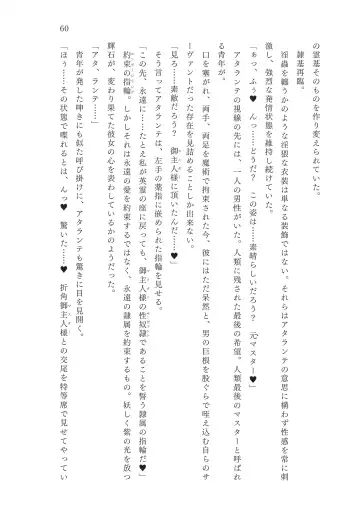 60
の霊基そのものを作り変えられていた。
隷基再臨。
淫蟲を纏うかのような淫猥な衣装は単なる装飾ではない。それらはアタランテの意思に構わず性感を常に刺
激し、強烈な発情状態を維持し続けていた。
「ぁっ、ふぅ♥ んっ……どうだ？ この姿は……素晴らしいだろう？ 元マスター♥」
アタランテの視線の先には、一人の男性がいた。人類に残された最後の希望。人類最後のマスターと呼ばれ
る青年が。
口を塞がれ、両手、両足を魔術で拘束された今、彼にはただ呆然と、男の巨根を股ぐらで咥え込む自らのサ
ーヴァントだった存在を見詰めることしか出来ない。
「見ろ……素敵だろう？ 御主人様に頂いたんだ……♥」
そう言ってアタランテは、左手の薬指に嵌められた指輪を見せる。
「この先、永遠に……たとえ私が英霊の座に戻っても、御主人様の性奴隷であることを誓う隷属の指輪だ♥」
約束の指輪。しかしそれは永遠の愛を約束するではなく、永遠の隷属を約束するもの。妖しく紫の光を放つ
輝石が、変わり果てた彼女の心を表しているかのようだった。
「アタ、ランテ……」
青年が発した呻きにも似た呼び掛けに、アタランテも驚きに目を見開く。
「ほう……その状態で喋れるとは、んっ♥ 驚いた……♥ 折角御主人様との交尾を特等席で見せてやってい